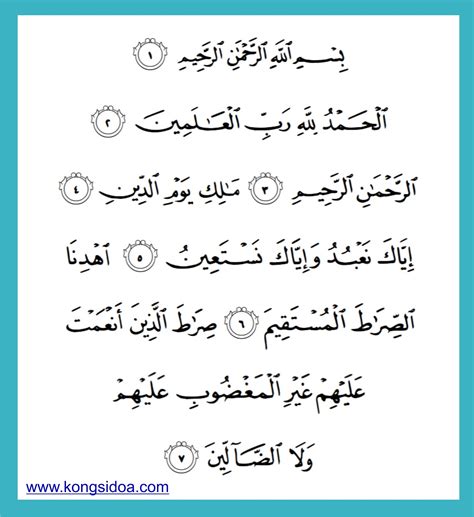 بِسْمِ ٱللَّهِ ٱلرَّحْمَٰنِ ٱلرَّحِيمِ ١
ٱلْحَمْدُ لِلَّهِ رَبِّ ٱلْعَٰلَمِينَ ٢
ٱلرَّحْمَٰنِ ٱلرَّحِيمِ ٣ مَٰلِكِ يَوْمِ ٱلدِّينِ ٤
إِيَّاكَ نَعْبُدُ وَإِيَّاكَ نَسْتَعِينُ ٥ ٱهْدِنَا
ٱلصِّرَٰطَ ٱلْمُسْتَقِيمَ ٦ صِرَٰطَ ٱلَّذِينَ أَنْعَمْتَ
عَلَيْهِمْ غَيْرِ ٱلْمَغْضُوبِ عَلَيْهِمْ
وَلَا ٱلضَّآلِّينَ ٧
www.kongsidoa.com